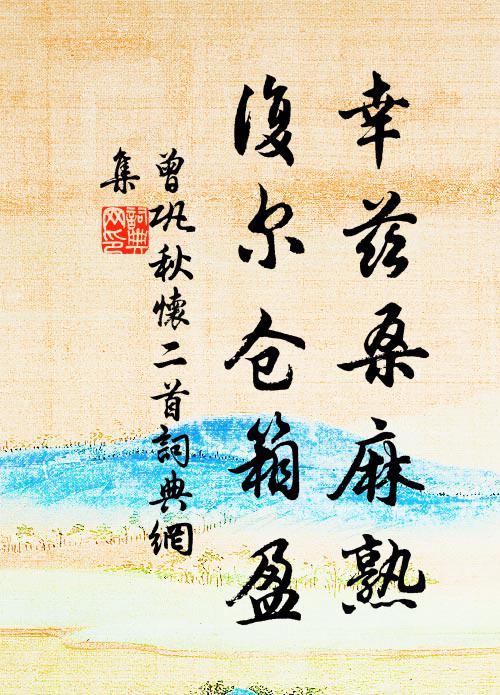 幸兹桑麻熟
復尔仓箱盈
曾巩秋懷二首詞典網
集
詞典网印